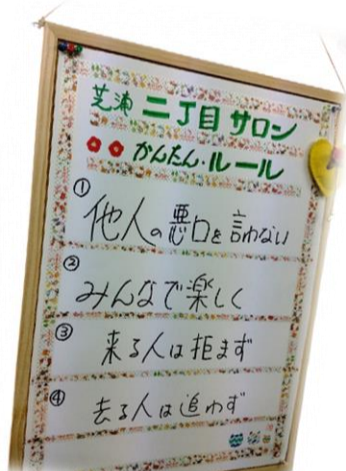 芝浦 二丁目 サロン
かんたん・ルール
① 他人の悪口を言わない
② みんなで楽しく
③ 来る人は拒まず
④ 去る人は追わず